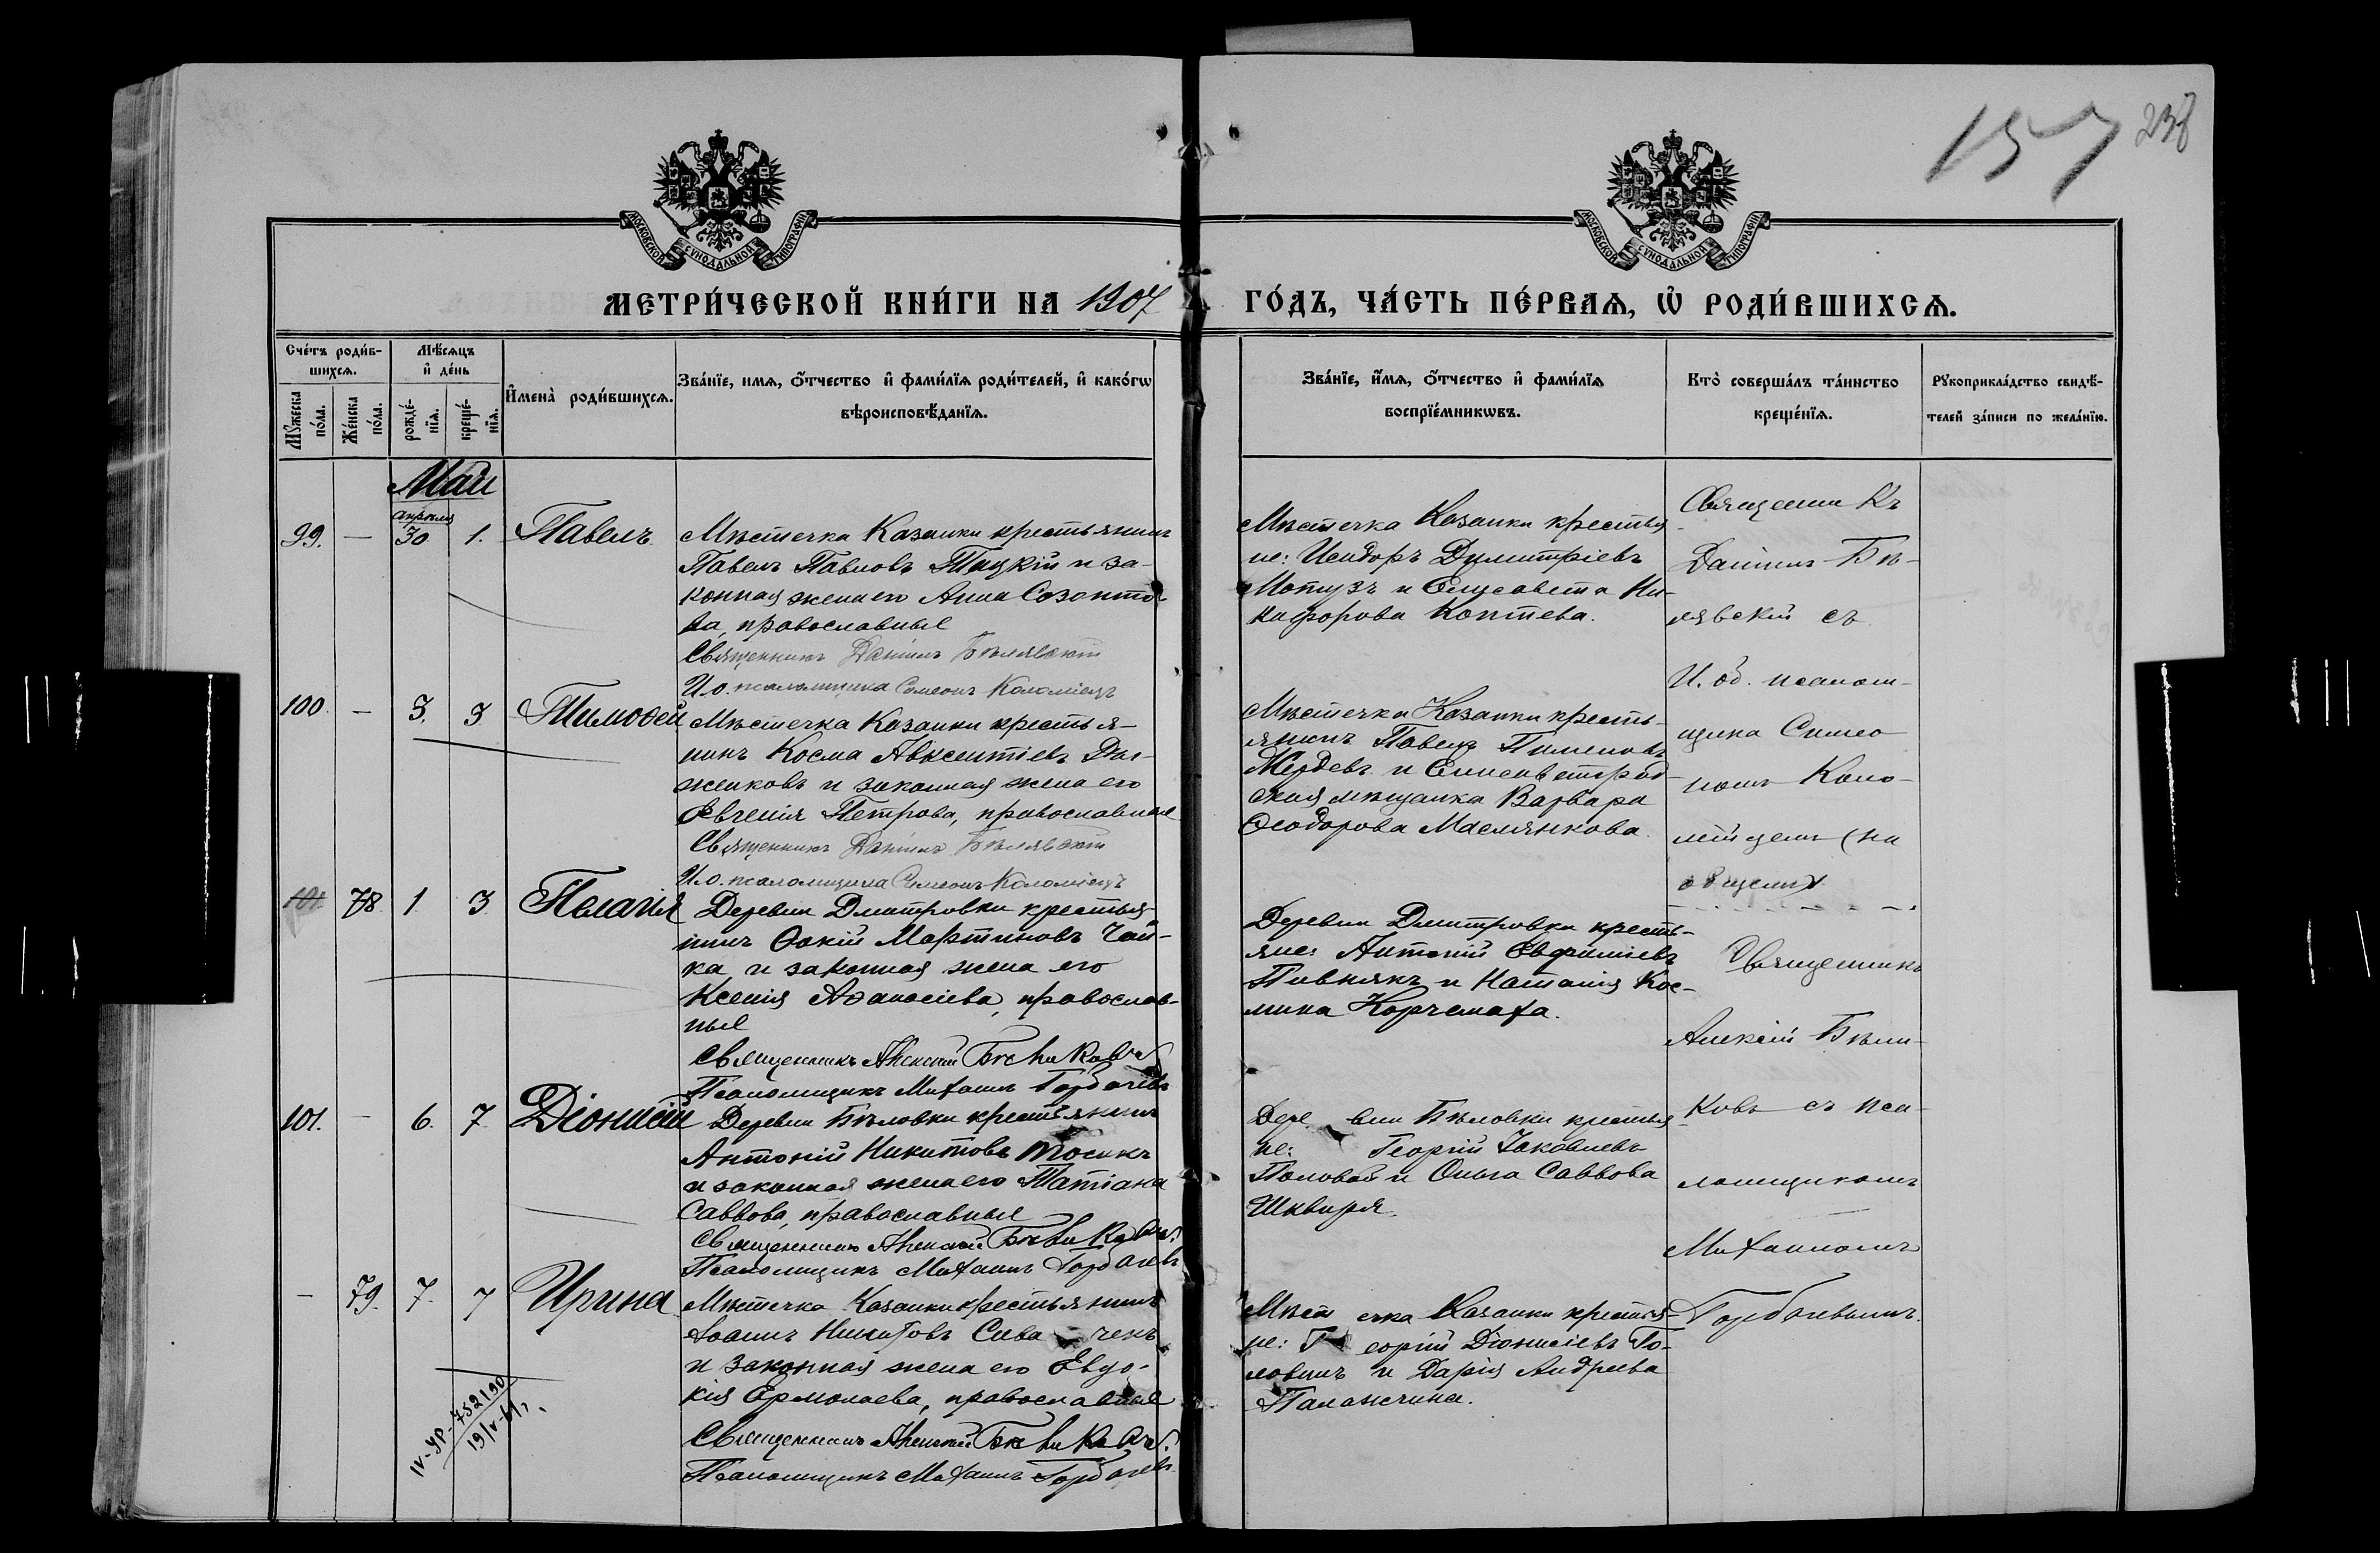 157 238
МОСКОВСКОЙ СУНОДАЛЬНОЙ ТИПОГРАФІИ
МОСКОВСКОЙ СУНОДАЛЬНОЙ ТИПОГРАФІИ
МЕТРИ́ЧЕСКОЙ КНИ́ГИ НА 1907 ГО́ДЪ, ЧА́СТЬ ПЕ́РВАѦ, Ѡ҆ РОДИ́ВШИХСѦ.
Сче́тъ роди́в-
шихсѧ.
Мꙋ́жеска по́ла.
Же́нска по́ла.
Мѣ́сѧцъ
и҆ де́нь
рожде́-нїѧ.
креще́-нїѧ.
И҆мена̀ роди́вшихсѧ.
Зва́нїе, имѧ, ѻ҆́тчество и҆ фами́лїѧ роди́телей, и҆ како́гѡ
вѣроисповѣ́данїѧ.
Зва́нїе, и҆́мѧ, ѻ҆́тчество и҆ фами́лїѧ
воспрїе́мникѡвъ.
Кто̀ соверша́лъ та́инство
креще́нїѧ.
Рꙋкоприкла́дство свидѣ́-
телей за́писи по жела́нїю.
Май
апрѣля
99. — 30 1. Павелъ
Мѣстечка Казанки крестьянинъ
Павелъ Павловъ Тицкій и за-
конная жена его Анна Созонто-
ва, православные
Священникъ Даніилъ Бѣлявскій
И.о. псаломщика Симеонъ Коломіецъ
Мѣстечка Казанки крестья
не: Исидоръ Димитріевъ
Мотузъ и Елисавета Ни-
кифорова Коптева.
Священникъ
Даніилъ Бѣ-
лявскій съ
И. об. псалом-
щика Симео
номъ Коло-
мійцемъ (на
общемъ)
100. — 3. 3 Тимофей
Мѣстечка Казанки крестья-
нинъ Косма Авксентіевъ
женковъ и законная жена его
Евгенія Петрова, православные
Священникъ Даніилъ Бѣлявскій
И.о. псаломщика Симеонъ Коломіецъ
Мѣстечка Казанки кресть-
янинъ Павелъ Пименовъ
и Елисаветград-
ская мѣщанка Варвара
Ѳеодорова Маслянкова.
101. 78 1. 3 Пелагія
Деревни Дмитровки крестья-
нинъ Фокій Мартиновъ Чай-
ка и законная жена его
Ксенія Аѳанасіева, православ-
ные
Священникъ Алексій Бѣликовъ
Псаломщикъ Михаилъ Горбачевъ
Деревни Дмитровки кресть-
яне: Антоній Евфиміевъ
Пивнякъ и Наталія Кос-
мина Корчемаха.
Священникъ
Алексій Бѣли-
ковъ съ пса-
ломщикомъ
Михаиломъ
Горбачевымъ.
101. — 6. 7. Діонисій
Деревни Бѣловки крестьянинъ
Антоній Никитовъ Тосикъ
и законная жена его Татіана
Саввова, православные
Священникъ Алексій Бѣликовъ
Псаломщикъ Михаилъ Горбачевъ
Деревни Бѣловки крестья
не: Георгій Іаковлевъ
Половой и Ольга Саввова
Шквиря.
— 79. 7. 7 Ирина
Мѣстечка Казанки крестьянинъ
Іоаннъ Никитовъ Сиваченъ
и законная жена его Евдо-
кія Ермолаева, православные
Священникъ Алексій Бѣликовъ
Псаломщикъ Михаилъ Горбачевъ
Мѣстечка Казанки крестья-
не: Георгій Діонисіевъ Го-
ловинъ и Дарія Андреева
Паланжчина.
IV-УР-752190
19/V-61,